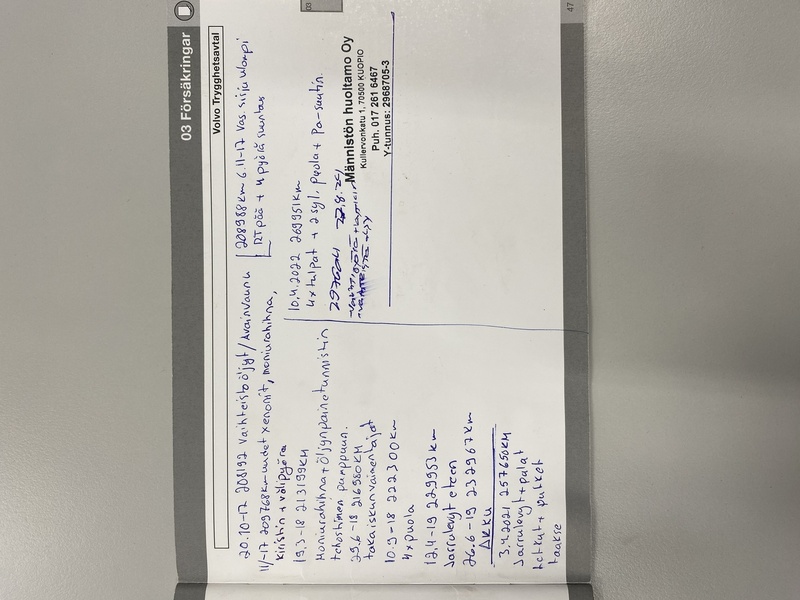 03 Försäkringar
Volvo Trygghetsavtal
20.10-17 208192 Vaihteistoöljyt/Avainvaunu
11/-17 209768km uudet xenonit, moniurahihna,
kiristin + välipyörä
208988km 6.11-17 Vas sisju ulompi
RT pää + 4 pyörä suuntas
19.3-18 213199KM
Moniurahihna + Öljynpainetunnistin
tehostimen pumppuun.
29.6-18 216980KM
takaiskunvaimentajat
10.9-18 222300km
4x puola
12.4-19 229953km
Jarrulevyt eteen
26.6-19 232967km
AKKU
3.4.2021 257650KM
Jarrulevyt + palat
letkut + putket
taakse
10.4.2022 269951km
4x tulpat + 2 syl. puola + Pa-suutin.
297604 22.8.24
Männistön huoltamo Oy
Kullervonkatu 1, 70500 KUOPIO
Puh. 017 261 6467
Y-tunnus: 2968705-3
03
47